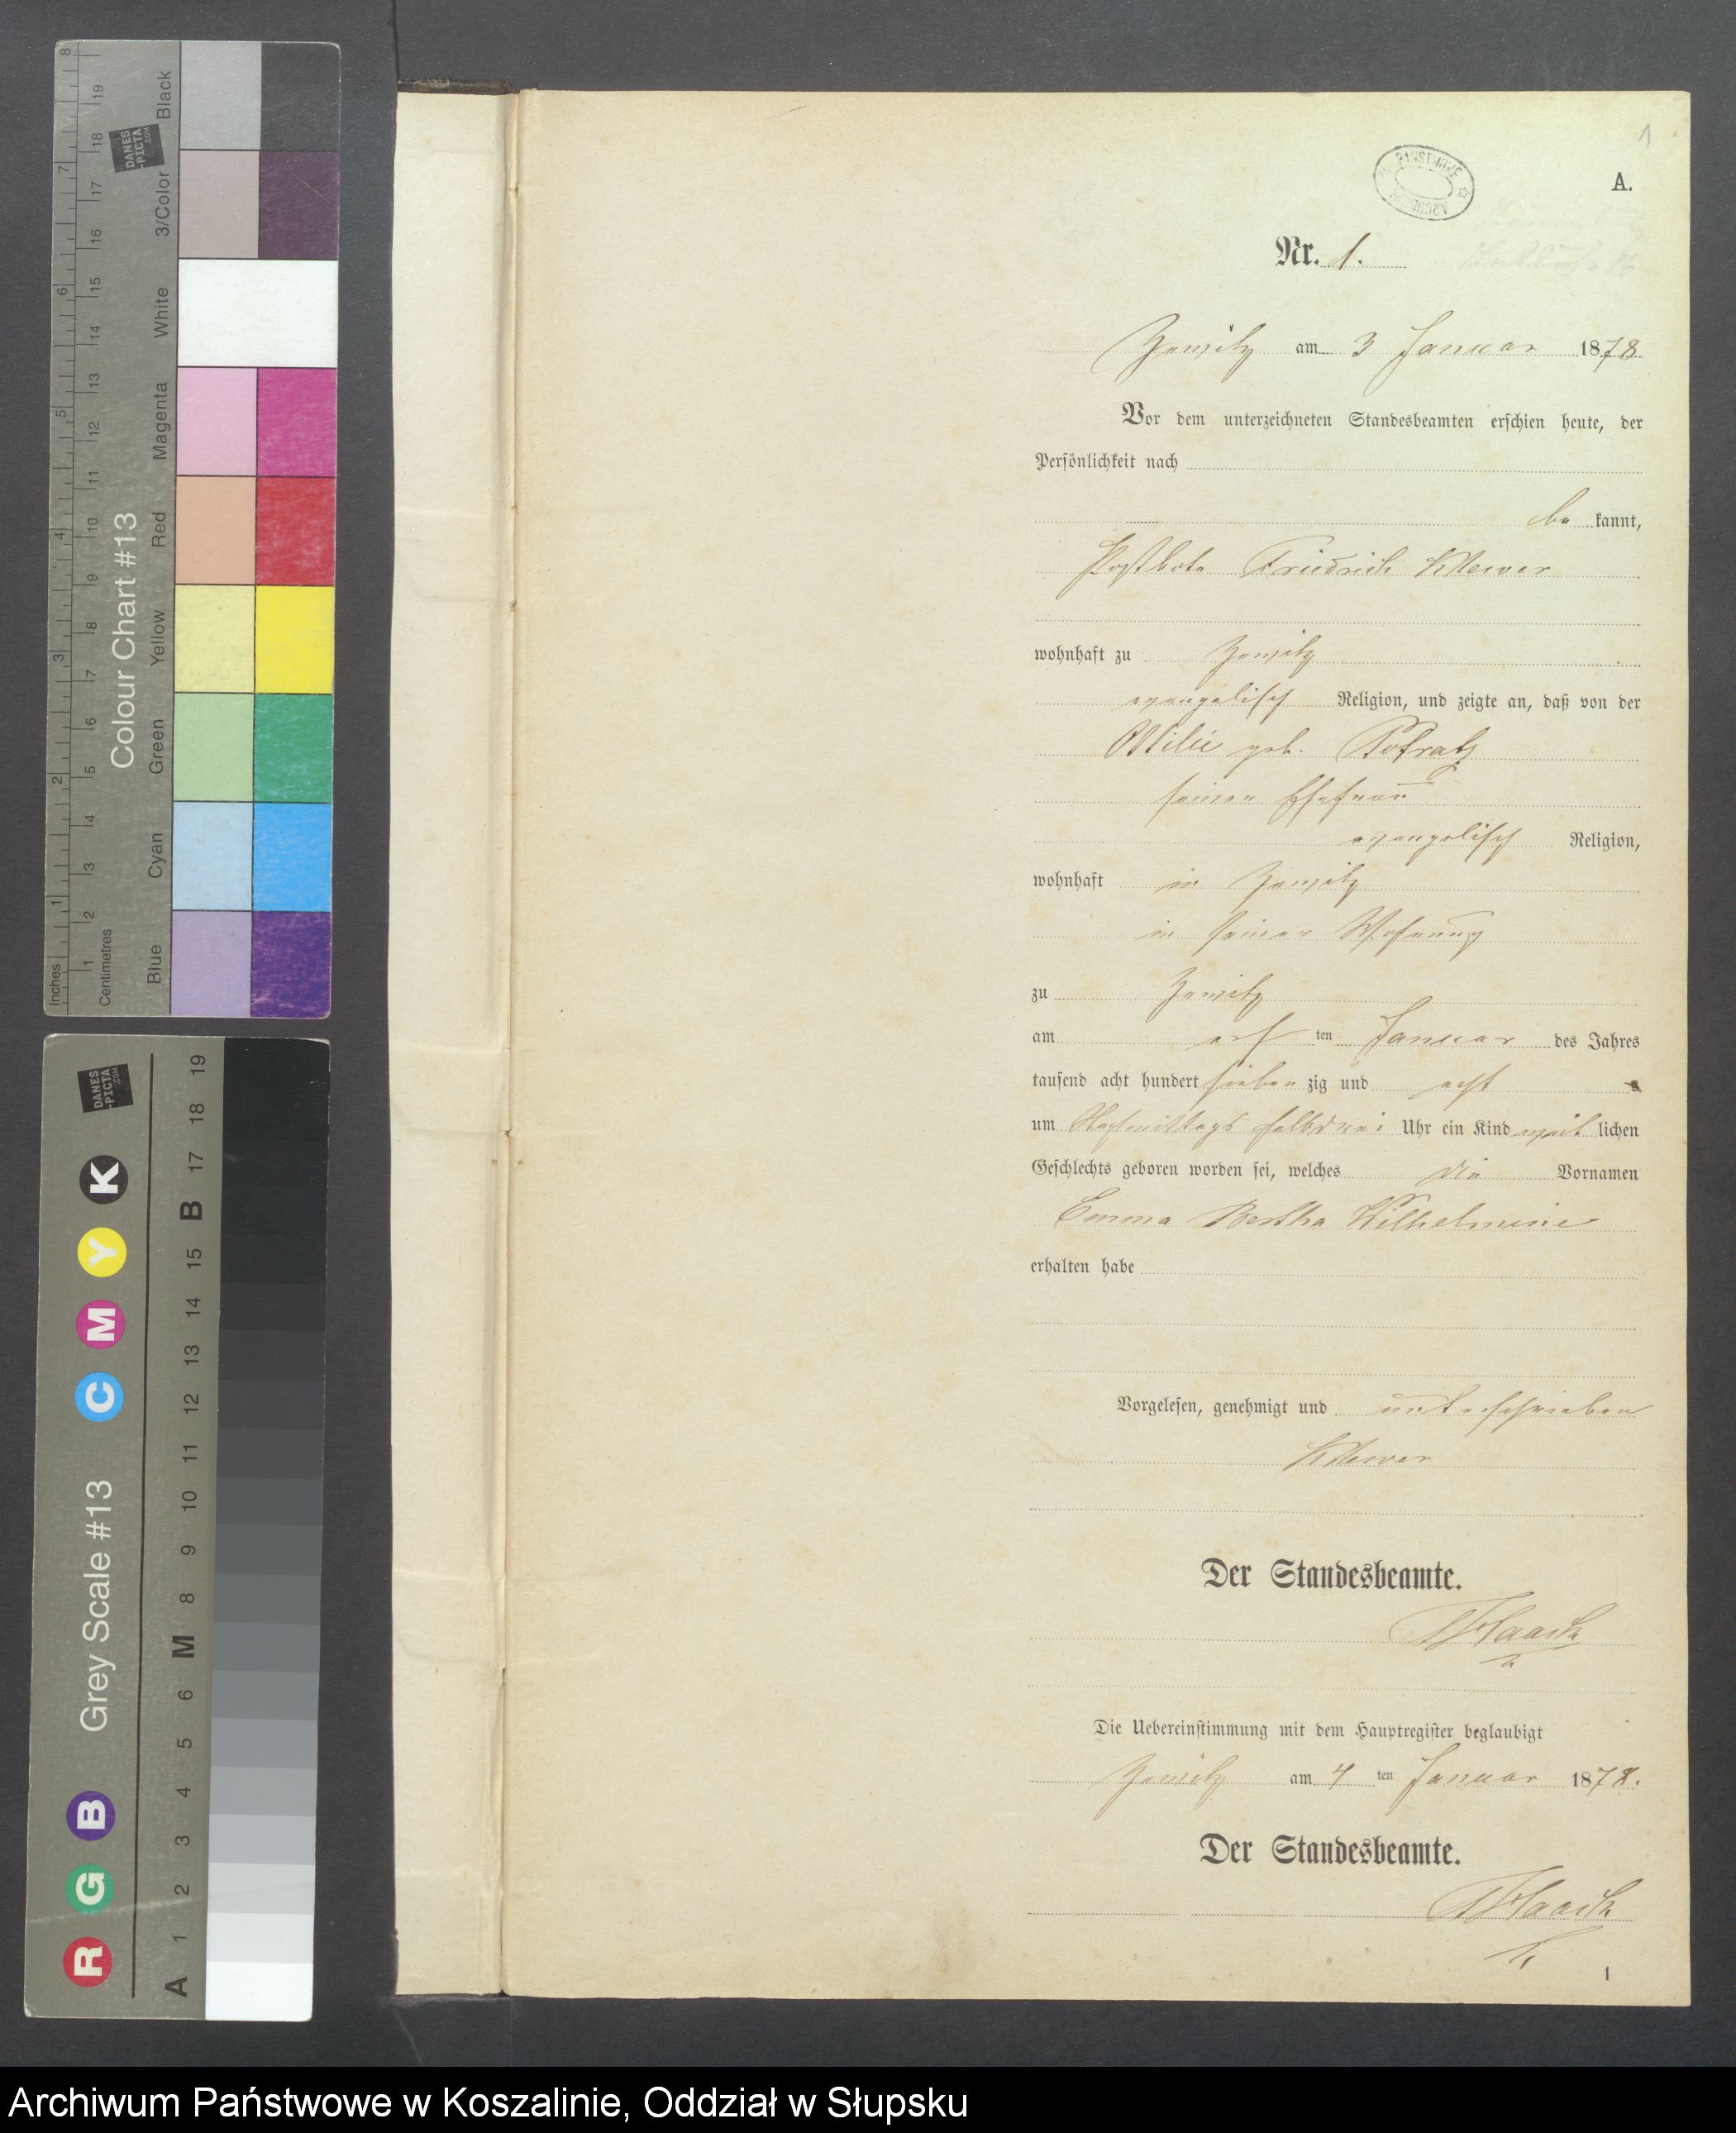 1
A.
Nr. 1.
Zewitz am 3 Januar 1878
Vor dem unterzeichneten Standesbeamten erschien heute, der
Persönlichkeit nach
be kannt,
Postbote Friedrich Klewer
wohnhaft zu Zewitz
evangelisch Religion, und zeigte an, daß von der
Ottilie geb. Potratz
seiner Ehefrau
evangelisch Religion,
wohnhaft in Zewitz
in seiner Wohnung
zu Zewitz
am ten Januar des Jahres
tausend acht hundert sieben zig und acht
um Nachmittags halbdrei Uhr ein Kind weib lichen
Geschlechts geboren worden sei, welches die Vornamen
Emma Bertha Wilhelmine
erhalten habe
Vorgelesen, genehmigt und unterschrieben
Klewer
Der Standesbeamte.
Haack
Die Uebereinstimmung mit dem Hauptregister beglaubigt
Zewitz am 4 ten Januar 1878.
Der Standesbeamte.
Haack
1
Colour Chart #13
Inches 1 2 3 4 5 6 7 8
Centimetres 1 2 3 4 5 6 7 8 9 10 11 12 13 14 15 16 17 18 19
Blue Cyan Green Yellow Red Magenta White 3/Color Black
DANES
-PICTA
.COM
Grey Scale #13
R G B C M Y K
A 1 2 3 4 5 6 M 8 9 10 11 12 13 14 15 B 17 18 19
DANES
-PICTA
.COM
Archiwum Państwowe w Koszalinie, Oddział w Słupsku